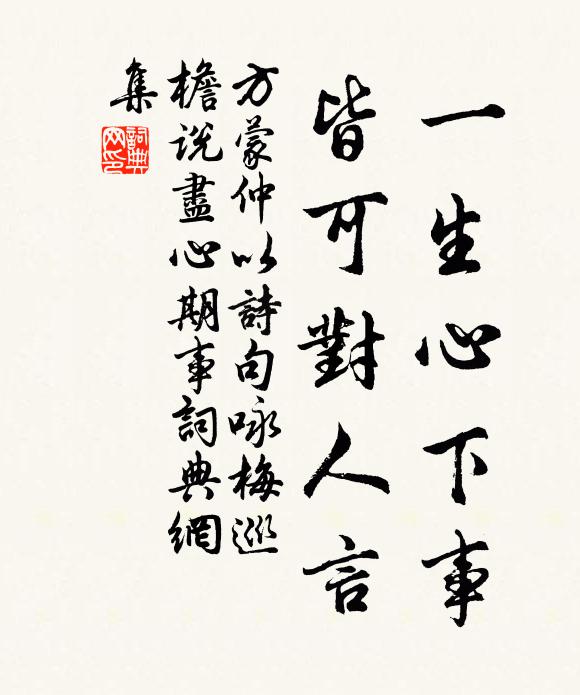 一生心下事
皆可對人言
方蒙仲以詩句咏梅巡
檐說盡心期事詞典網
集
詞典
网印